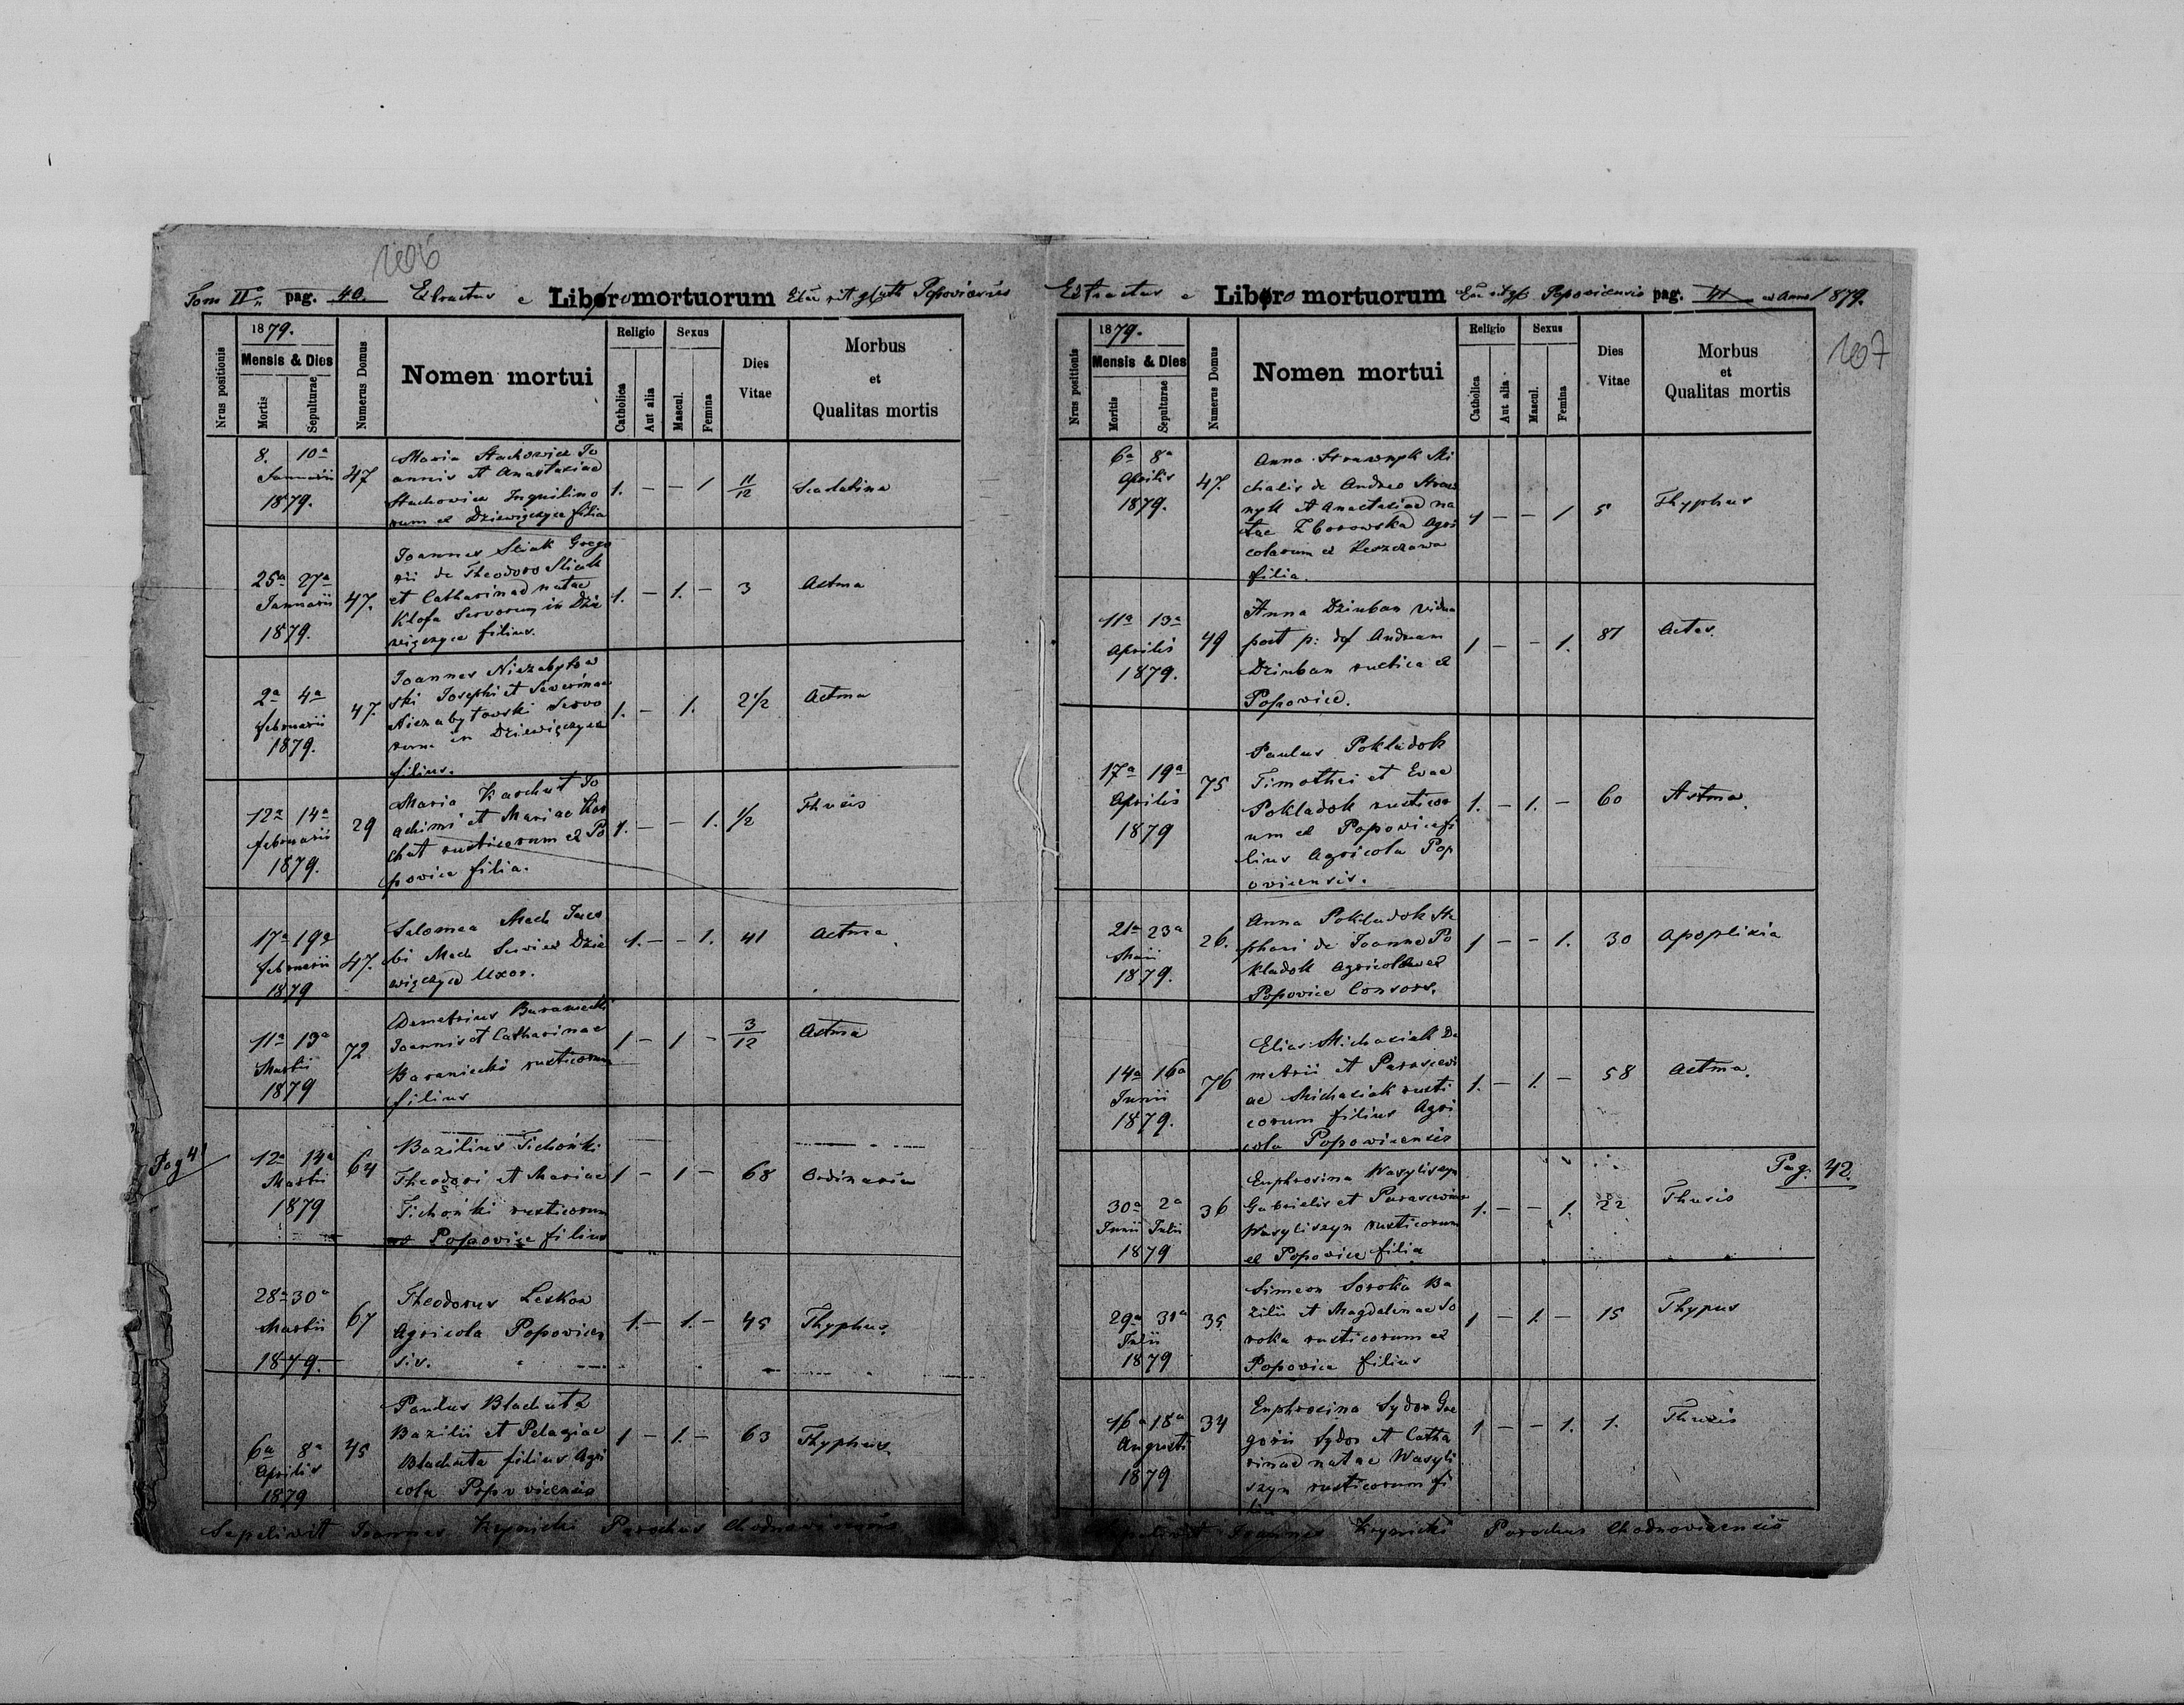 106
Tom II pag. 40. Extractus e Libro mortuorum Popovicensis
Nrus positionis
1879.
Mensis & Dies
Mortis
Sepulturae
Numerus Domus
Nomen mortui
Religio
Catholica
Aut alia
Sexus
Mascul.
Femina
Dies Vitae
Morbus
et
Qualitas mortis
8. 10a
Januarii
1879.
47
Maria Stachowicz Jo
annis et Anastasiae
Stachowicz Inquilino
rum ex Dziewięczyce filia
1. — — 1 11/12 Scarlatina
25a 27a
Januarii
1879.
47.
Joannes Sliak Grego
rii de Theodoro Sliak
et Catharinae natae
Klofa Servorum in Dzie
więczyce filius.
1. — 1. — 3 Astma
2a 4a
februarii
1879.
47.
Joannes Niezabytow
ski Josephi et Severinae
Niezabytowski Servo
rum in Dziewięczyce
filius.
1. — 1. 2 1/2 Astma
12a 14a
februarii
1879.
29
Maria Karchut Jo
achimi et Mariae Kar
chut rusticorum ex Po
powice filia.
1. — — 1. 1/2 Thusis
17a 19a
februarii
1879
47.
Salomea Mach Jaco
bi Mach Servi ex Dzie
więczyce Uxor.
1. — - 1. 41 Astma.
11a 13a
Martii
1879
72
Demetrius Baraniecki
Joannis et Catharinae
Baraniecki rusticorum
filius
1 — 1 - 3/12 Astma
Pag 41
12a 14a
Martii
1879
64
Bazilius Tichoński
Theodori et Mariae
Tichoński rusticorum
ex Popowice filius
1 — 1 — 68 Ordinaria
28a 30a
Martii
1879.
67
Theodorus Leskow
Agricola Popovicen
sis.
1. — 1. — 45 Thyphus.
6a 8a
Aprilis
1879
45
Paulus Blachuta
Bazilii et Pelagiae
Blachuta filius Agri
cola Popovicensis
1 — 1. — 63 Thyphus
Sepelivit Joannes Krynicki Parochus Chodnovicensis
Extractus e Libro mortuorum Popovicensis pag. 41 ex Anno 1879.
107
Nrus positionis
1879.
Mensis & Dies
Moritis
Sepulturae
Numerus Domus
Nomen mortui
Religio
Catholica
Aut alia
Sexus
Mascul.
Femina
Dies
Vitae
Morbus
et
Qualitas mortis
6a 8a
Aprilis
1879.
47.
Anna Mi
chalis de Andreo
et Anastasiae na
tae Zborowska Agri
colarum ex Leszczawa
filia.
1 — — 1 5 Thyphus
11a 13a
Aprilis
1879.
49
Anna Dziuban vidua
post p: def Andream
Dziuban rustica ex
Popowice.
1 — - 1. 81 Aetas.
17a 19a
Aprilis
1879
75
Paulus Pokladok
Timothei et Evae
Pokladok rusticor
um ex Popowice fi
lius Agricola Pop
ovicensis.
1. — 1. — 60 Astma.
21a 23a
Maii
1879.
26.
Anna Pokladok Ste
phani de Joanne Po
kladok Agricolae ex
Popovice Consors.
1 — - 1. 30 Apoplixia
14a 16a
Junii
1879.
76
Elias Michasiak De
metrii et Parascevi
ae Michasiak rusti
corum filius Agri
cola Popovicensis
1. — 1. — 58 Astma.
Pag. 42.
30a 2a
Junii Julii
1879
36
Euphrosina Wasyliszyn
Gabrielis et Parasceviae
Wasyliszyn rusticorum
ex Popovice filia
1. — — 1. 22 Thusis
29a 31a
Julii
1879
35
Simeon Soroka Ba
zilii et Magdalenae So
roka rusticorum ex
Popovice filius
1 — 1. — 15 Thypus
16a 18a
Augusti
1879
34
Euphrosina Sydor Gre
gorii Sydor et Catha
rinae natae Wasyli
szyn rusticorum fi
lia
1 — — 1. 1. Thusis
Sepelivit Joannes Krynicki Parochus Chodnovicensis